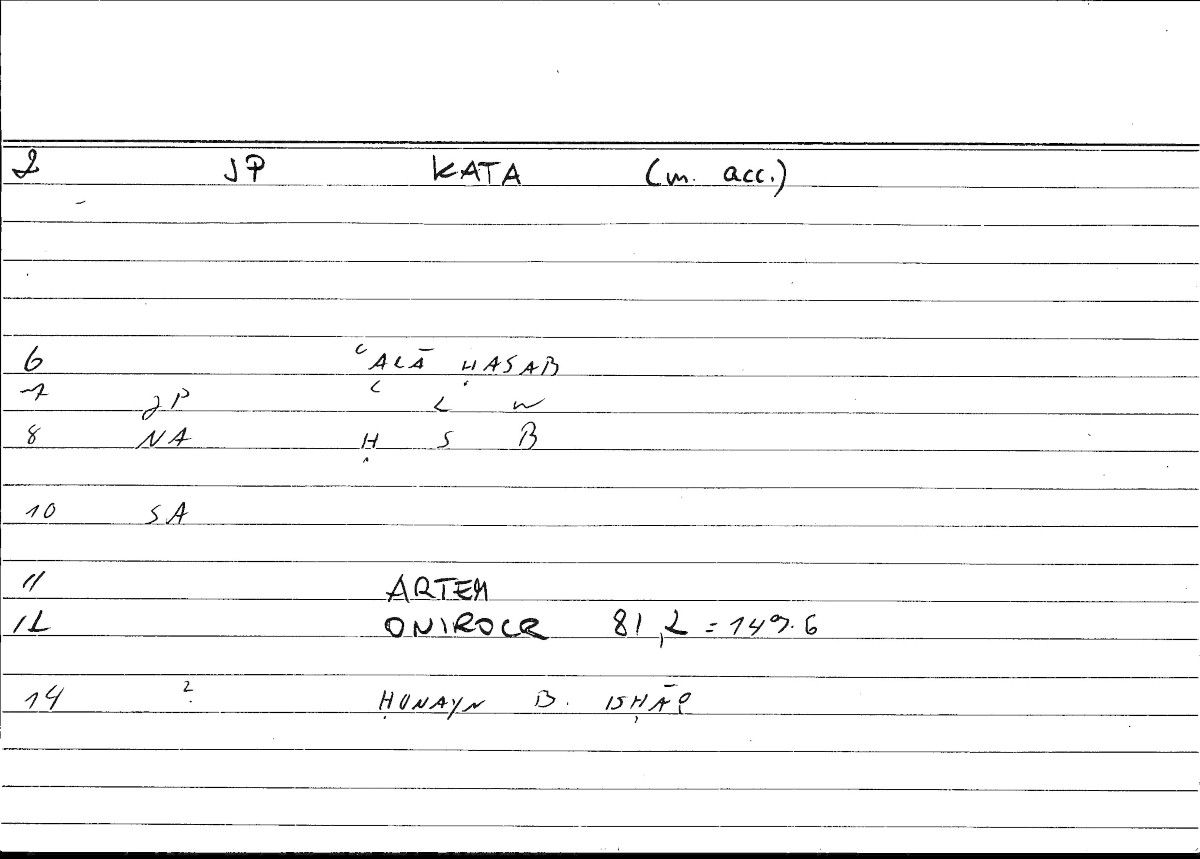 2 JP KATA (m. acc.)
6 ʿALĀ ḤASAB
7 JP ʿ L W
8 NA Ḥ S B
10 SA
11 ARTEM
12 ONIROCR 81,2 = 149.6
14 2 ḤUNAYN B. ISḤĀQ